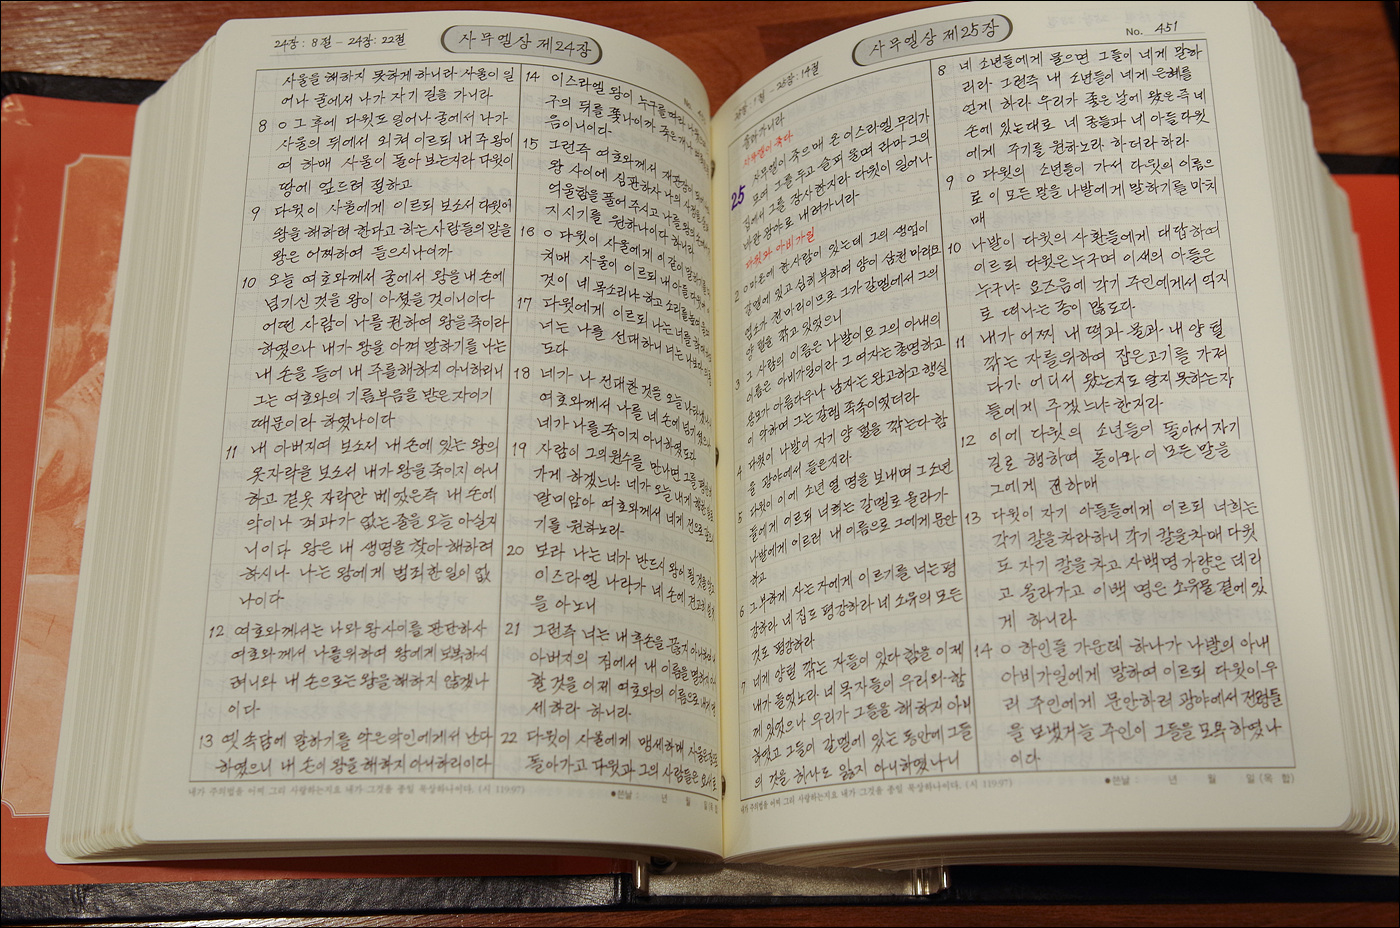 24장: 8절 - 24장: 22절
사무엘상 제24장
사울을 해하지 못하게 하니라 사울이 일
어나 굴에서 나가 자기 길을 가니라
8 O 그 후에 다윗도 일어나 굴에서 나가
사울의 뒤에서 외쳐 이르되 내 주 왕이
여 하매 사울이 돌아 보는지라 다윗이
땅에 엎드려 절하고
9 다윗이 사울에게 이르되 보소서 다윗이
왕을 해하려 한다고 하는 사람들의 말을
왕은 어찌하여 들으시나이까
10 오늘 여호와께서 굴에서 왕을 내 손에
넘기신 것을 왕이 아셨을 것이니이다
어떤 사람이 나를 권하여 왕을 죽이라
하였으나 내가 왕을 아껴 말하기를 나는
내 손을 들어 내 주를 해하지 아니하리니
그는 여호와의 기름 부음을 받은 자이기
때문이라 하였나이다
11 내 아버지여 보소서 내 손에 있는 왕의
옷자락을 보소서 내가 왕을 죽이지 아니
하고 겉옷 자락만 베었은즉 내 손에
악이나 죄과가 없는 줄을 오늘 아실지
니이다 왕은 내 생명을 찾아 해하려
하시나 나는 왕에게 범죄한 일이 없
나이다
12 여호와께서는 나와 왕 사이를 판단하사
여호와께서 나를 위하여 왕에게 보복하시
려니와 내 손으로는 왕을 해하지 않겠나
이다
13 옛 속담에 말하기를 악은 악인에게서 난다
하였으니 내 손이 왕을 해하지 아니하리이다
14 이스라엘 왕이 누구를 따라
구의 뒤를 쫓나이까 죽은 개나
음이니이다
15 그런즉 여호와께서 재판장이
왕 사이에 심판하사 나의 사정을
억울함을 풀어 주시고 나를 왕의
지시기를 원하나이다 하니라
16 O 다윗이 사울에게 이같이 말하기를
쳐매 사울이 이르되 내 아들 다윗아
것이 네 목소리냐 하고 소리를 높여
17 다윗에게 이르되 나는 너를 학대
너는 나를 선대하니 너는 나보다
도다
18 네가 나 선대한 것을 오늘 나타냈나니
여호와께서 나를 네 손에 넘기셨으나
네가 나를 죽이지 아니하였도다
19 사람이 그의 원수를 만나면 그를
가게 하겠느냐 네가 오늘 내게 행한 일로
말미암아 여호와께서 네게 선으로
기를 원하노라
20 보라 나는 네가 반드시 왕이 될 것을
이스라엘 나라가 네 손에 견고히 설
을 아노니
21 그런즉 너는 내 후손을 끊지 아니하며
아버지의 집에서 내 이름을 멸하지
할 것을 이제 여호와의 이름으로 내게
세하라 하니라
22 다윗이 사울에게 맹세하매 사울은
돌아가고 다윗과 그의 사람들은 요새로
내가 주의 법을 어찌 그리 사랑하는지요 내가 그것을 종일 묵상하나이다. (시 119:97)
●쓴날 년 월 일
사무엘상 제25장
No. 451
25장: 1절 - 25장: 14절
올라가니라
사무엘이 죽다
25 사무엘이 죽으매 온 이스라엘 무리가
모여 그를 두고 슬피 울며 라마 그의
집에서 그를 장사한지라 다윗이 일어나
바란 광야로 내려가니라
다윗과 아비가일
2 O 마온에 한 사람이 있는데 그의 생업이
갈멜에 있고 심히 부하여 양이 삼천 마리요
염소가 천 마리이므로 그가 갈멜에서 그의
양 털을 깎고 있었으니
3 그 사람의 이름은 나발이요 그의 아내의
이름은 아비가일이라 그 여자는 총명하고
용모가 아름다우나 남자는 완고하고 행실
이 악하며 그는 갈렙 족속이었더라
4 다윗이 나발이 자기 양 털을 깎는다 함
을 광야에서 들은지라
5 다윗이 이에 소년 열 명을 보내며 그 소년
들에게 이르되 너희는 갈멜로 올라가
나발에게 이르러 내 이름으로 그에게 문안
하고
6 그 부하게 사는 자에게 이르기를 너는 평
강하라 네 집도 평강하라 네 소유의 모든
것도 평강하라
7 네게 양 털 깎는 자들이 있다 함을 이제
내가 들었노라 네 목자들이 우리와 함
께 있었으나 우리가 그들을 해하지 아니
하였고 그들이 갈멜에 있는 동안에 그들
의 것을 하나도 잃지 아니하였나니
8 네 소년들에게 물으면 그들이 네게 말하
리라 그런즉 내 소년들이 네게 은혜를
얻게 하라 우리가 좋은 날에 왔은즉 네
손에 있는대로 네 종들과 네 아들 다윗
에게 주기를 원하노라 하더라 하라
9 O 다윗의 소년들이 가서 다윗의 이름으
로 이 모든 말을 나발에게 말하기를 마치
매
10 나발이 다윗의 사환들에게 대답하여
이르되 다윗은 누구며 이새의 아들은
누구냐 요즈음에 각기 주인에게서 억지
로 떠나는 종이 많도다
11 내가 어찌 내 떡과 물과 내 양 털
깎는 자를 위하여 잡은 고기를 가져
다가 어디서 왔는지도 알지 못하는 자
들에게 주겠느냐 한지라
12 이에 다윗의 소년들이 돌아서 자기
길로 행하여 돌아와 이 모든 말을
그에게 전하매
13 다윗이 자기 아들들에게 이르되 너희는
각기 칼을 차라 하니 각기 칼을 차매 다윗
도 자기 칼을 차고 사백 명 가량은 데리
고 올라가고 이백 명은 소유물 곁에 있
게 하니라
14 O 하인들 가운데 하나가 나발의 아내
아비가일에게 말하여 이르되 다윗이 우
리 주인에게 문안하러 광야에서 전령들
을 보냈거늘 주인이 그들을 모욕하였나
이다
내가 주의 법을 어찌 그리 사랑하는지요 내가 그것을 종일 묵상하나이다. (시 119:97)
●쓴날 년 월 일 (요 합)